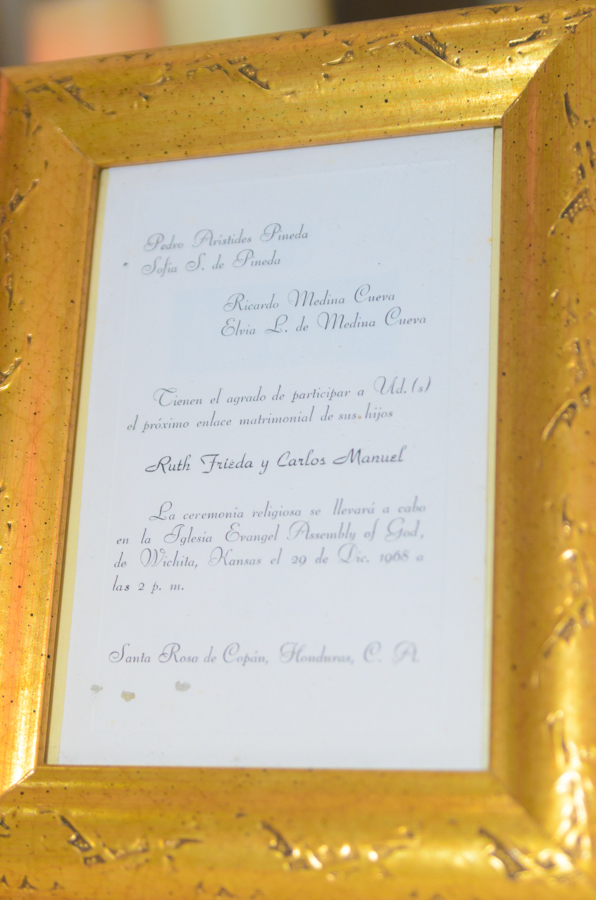 Pedro Aristides Pineda
Sofia S. de Pineda
Ricardo Medina Cueva
Elvia L. de Medina Cueva
Tienen el agrado de participar a Ud.(s)
el próximo enlace matrimonial de sus hijos
Ruth Frieda y Carlos Manuel
La ceremonia religiosa se llevará a cabo
en la Iglesia Evangel Assembly of God,
de Wichita, Kansas el 29 de Dic. 1968 a
las 2 p. m.
Santa Rosa de Copán, Honduras, C. A.